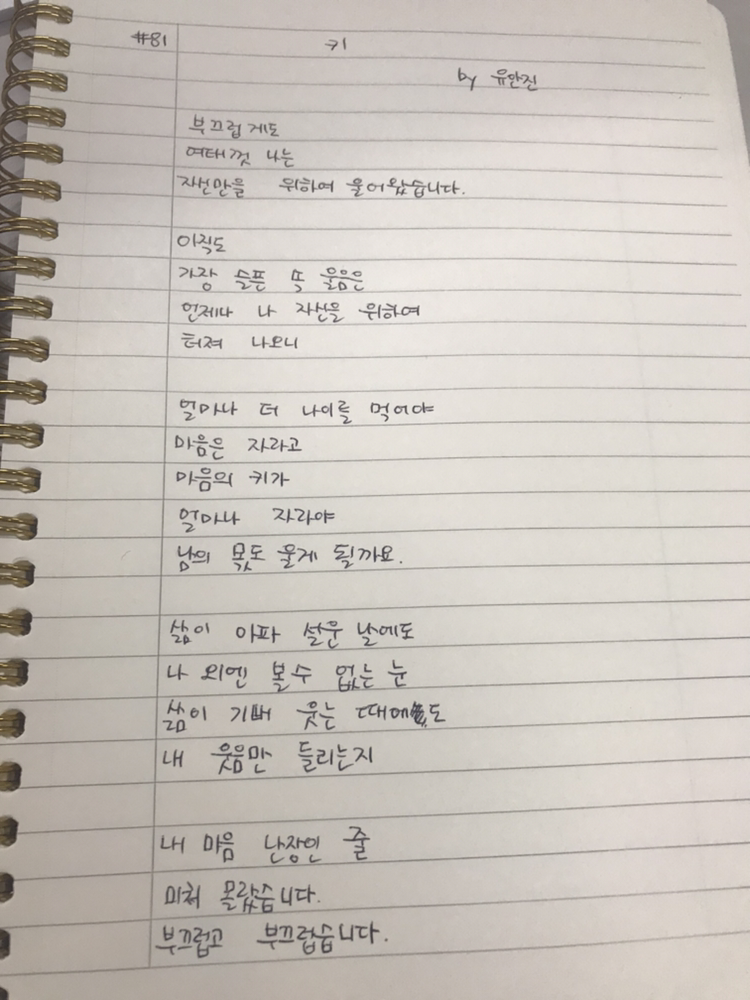 #81 키
by 유안진
부끄럽게도
여태껏 나는
자신만을 위하여 울어왔습니다.
아직도
가장 슬픈 똑 울음은
언제나 나 자신을 위하여
터져 나오니
얼마나 더 나이를 먹어야
마음은 자라고
마음의 키가
얼마나 자라야
남의 몫도 울게 될까요.
삶이 아파 설운 날에도
나 외엔 볼 수 없는 눈
삶이 기뻐 웃는 때에도
내 웃음만 들리는지
내 마음 난장인 줄
미처 몰랐습니다.
부끄럽고 부끄럽습니다.